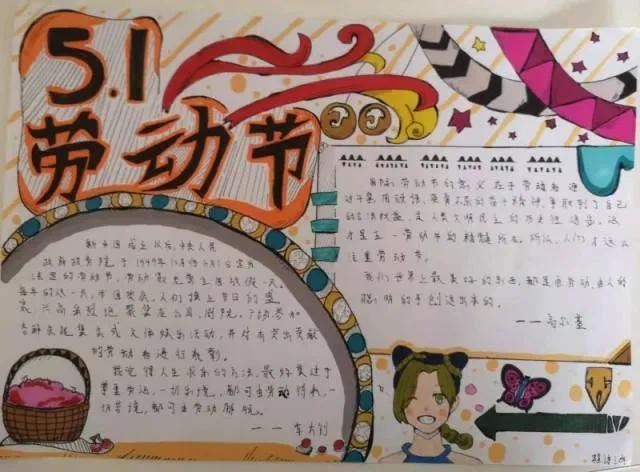 5.1
劳动节
J J
新中国成立以后,中央人民
政府政务院于1949年12月
法定的劳动节,劳动
每年的这一天,人们换上节日的盛
装,兴高采烈地聚集在公园、剧院、广场,参加
各种庆祝集会或文体娱乐活动,并对有突出贡献
的劳动者进行
我觉得人生求乐的方法,最好莫过于
尊重劳动。一切乐境,都可由劳动得来,一
切苦境,都可由劳动解脱。
——李大钊
国际劳动节的意义在于劳动者通
过斗争,用顽强、英勇不屈的奋斗精神,争取到了自己
的合法权益,是人类文明民主的历史性进步,这
才是五一劳动节的精髓所在。所以,人们才这么
注重劳动节。
我们世界上最美好的东西,都是由劳动、由人的
聪明的手创造出来的。
——高尔基